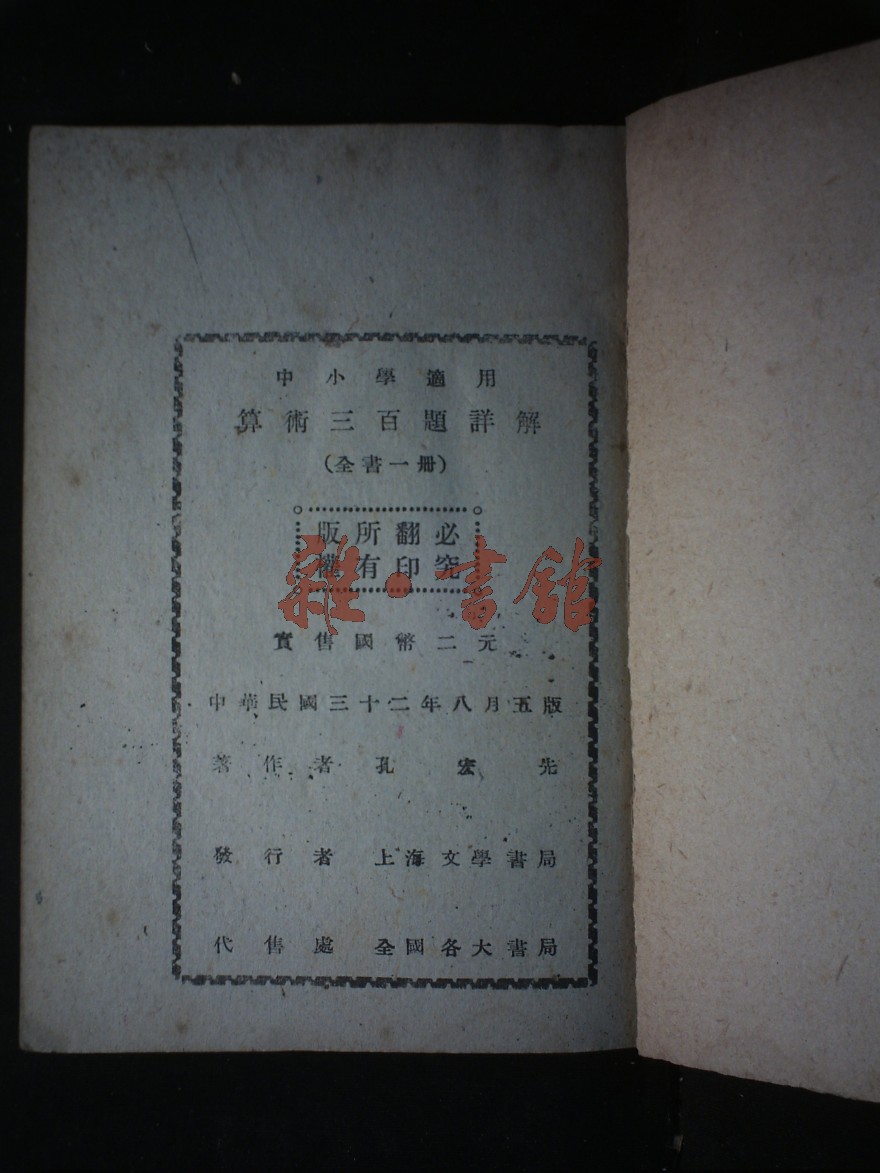 中小學適用
算術三百題詳解
(全書一册)
版所翻必
權有印究
雜·書館
實售國幣二元
中華民國三十二年八月五版
著作者 孔宏先
發行者 上海文學書局
代售處 全國各大書局